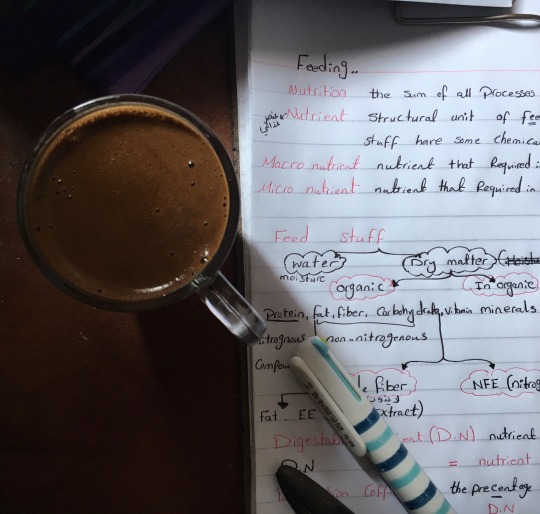 Feeding..
Nutrition the sum of all Processes
Nutrient Structural unit of fee
stuff have some chemica
Macro nutrient nutrient that Required i
Micro nutrient nutrient that Required in
Feed stuff
water Dry matter
moisture
organic In organic
Protein, fat, fiber, Carbohydrate, vitamin minerals
itrognous non-nitrogenous
Compou
e fiber NFE (nitrog
Fat EE xtract)
Digestab ent (D.N) nutrient
D.N = nutrient
Coff the precentage
D.N